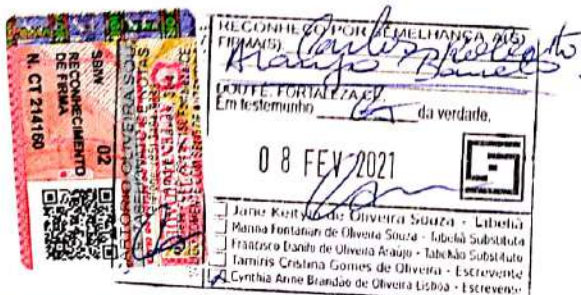 SELO
02
RECONHECIMENTO
DE FIRMA
N. CT 214160
CARTÓRIO OLIVEIRA SOU
RECONHEÇO POR SEMELHANÇA A(S)
FIRMA(S) Carlos Roberto
Araujo Barreto
DOU FÉ. FORTALEZA-CE
Em testemunho da verdade.
08 FEV 2021
Jane Keitylo de Oliveira Souza - Tabeliã
Marina Fontanari de Oliveira Souza - Tabeliã Substituta
Francisco Danilo de Oliveira Araújo - Tabelião Substituto
Tamiris Cristina Gomes de Oliveira - Escrevente
Cynthia Anne Brandão de Oliveira Lisboa - Escrevente